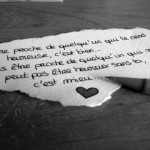 être proche de quelqu'un qui te rend
heureuse, c'est bien...
être proche de quelqu'un qui ne
peut pas être heureux sans toi,
c'est mieux